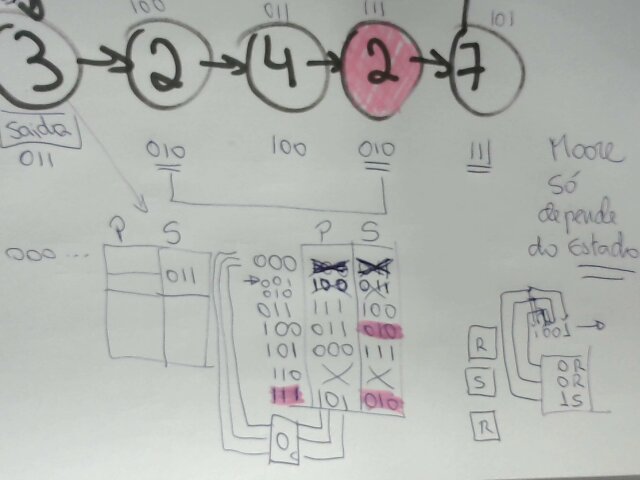 100 011 111 101
3 2 4 2 7
Saída
011 010 100 010 111
Moore
só
depende
do Estado
P S
000 ...
011
P S
000
001
010
011 111 100
100 011 010
101 000 111
110 X X
111 101 010
1001
R
S
R
0R
0R
1S